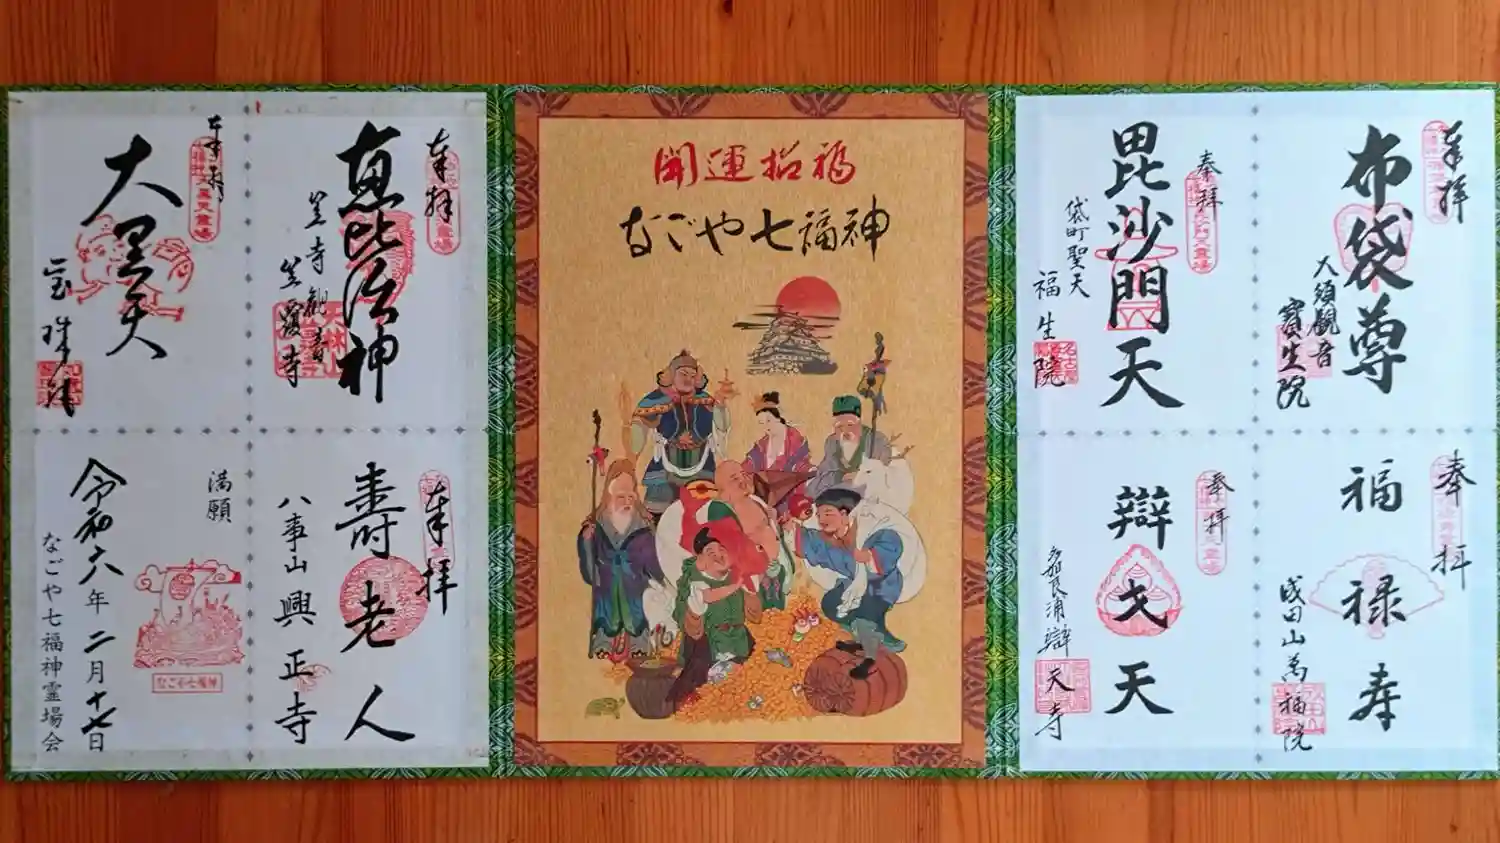 開運招福
なごや七福神
奉拝
布袋尊
大須観音
寳生院
奉拝
毘沙門天
袋町聖天
福生院
奉拝
福禄寿
成田山萬福院
奉拝
辯才天
辯天寺
奉拝
恵比須神
笠寺観音
笠覆寺
奉拝
大黒天
宝珠院
奉拝
壽老人
八事山興正寺
満願
なごや七福神
令和六年二月十七日
なごや七福神霊場会